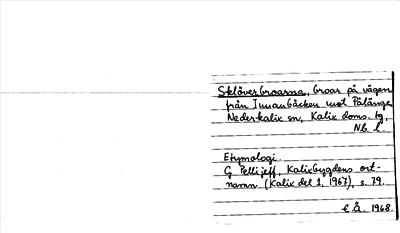 Sklöverbroarna, broar på vägen
från Innanbäcken mot Pålänge
Nederkalix sn, Kalix doms. tg,
Nb. l.
Etymologi.
G Pellijeff, Kalixbygdens ort-
namn (Kalix del 1, 1967), s. 79.
E.Å. 1968.